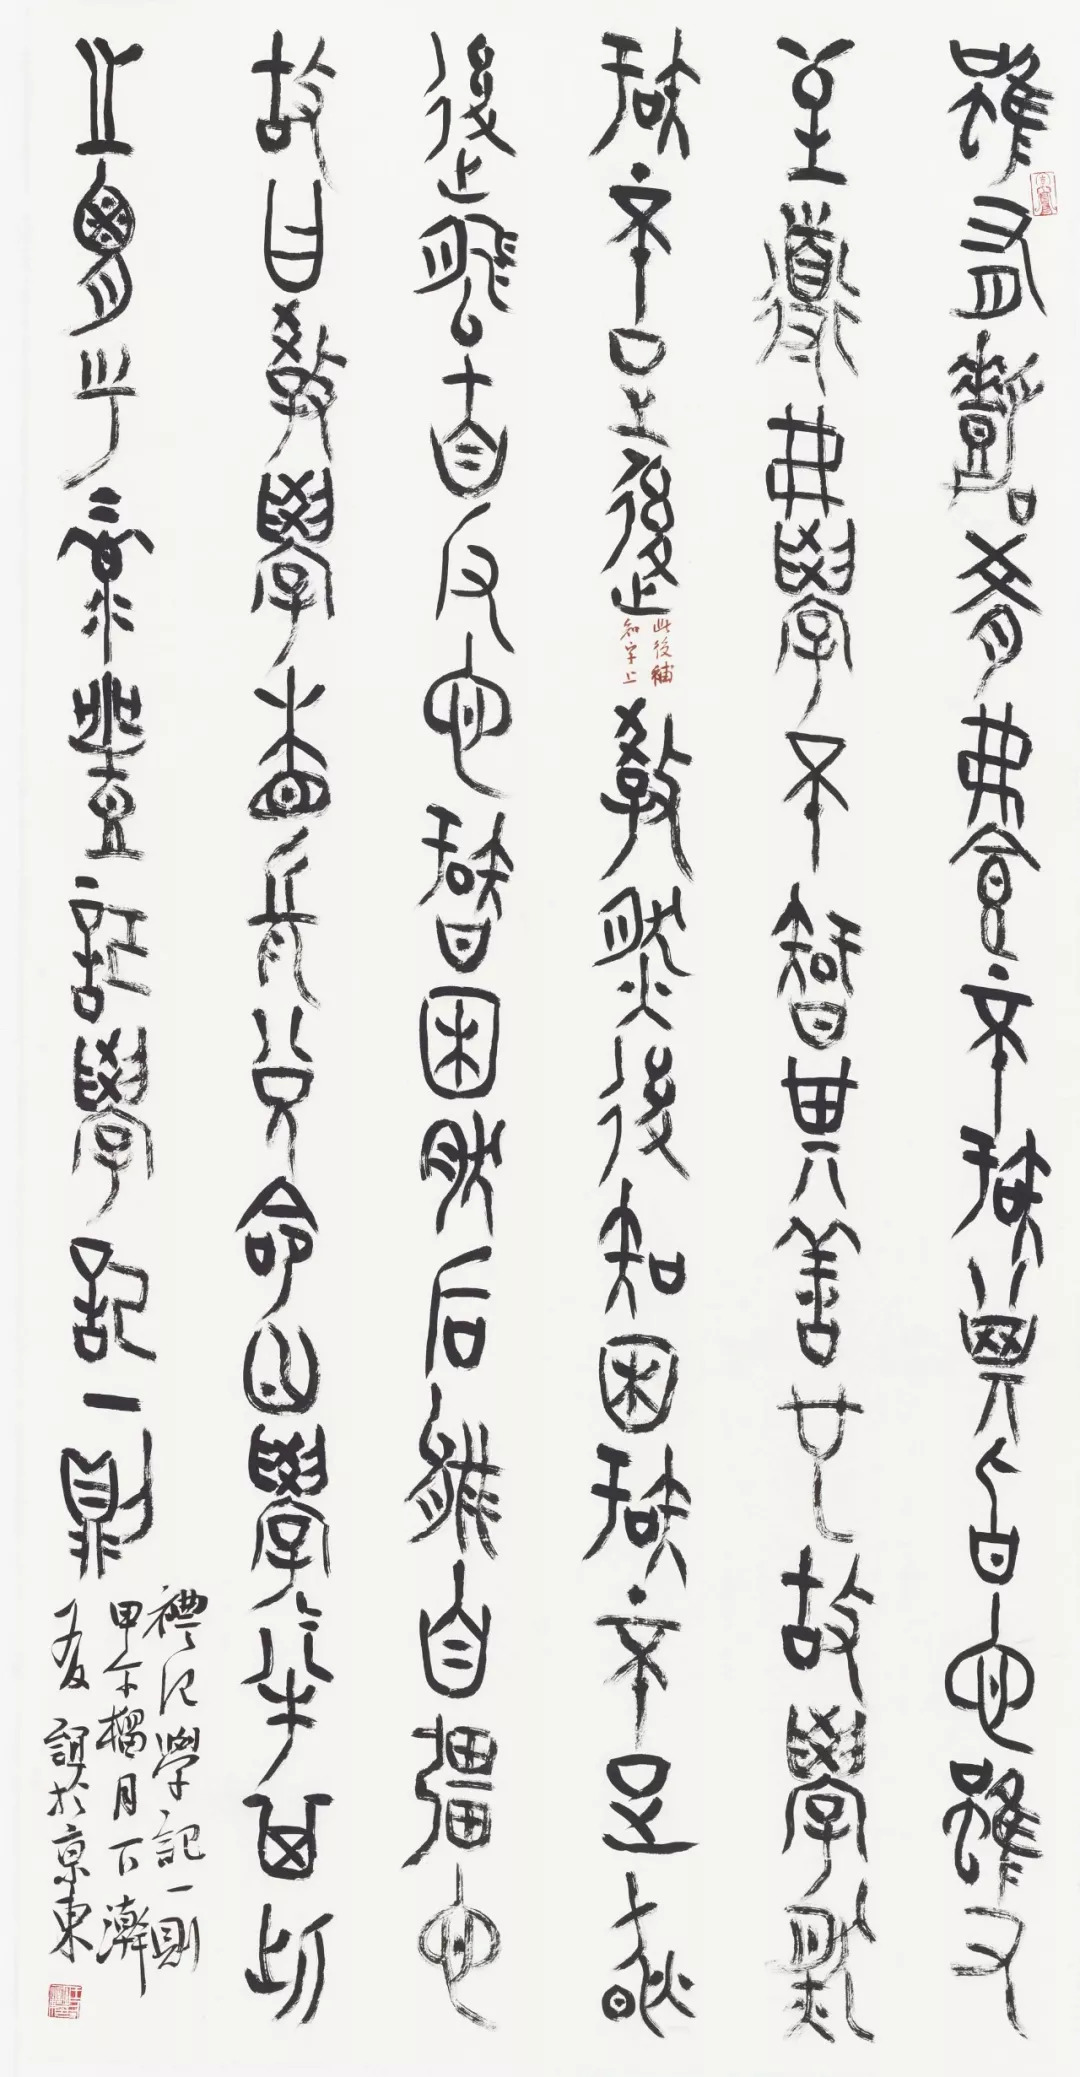 雖有嘉肴弗食不知其旨也雖又
至道弗學不智其善也故學然
知不足後教然後知困知不足然
此後補
知字上
後能自反也智困然后能自彊也
故曰教學相長兌命曰學半其此
之胃乎禮記學記一則
禮記學記一則
甲午榴月下澣
於京東